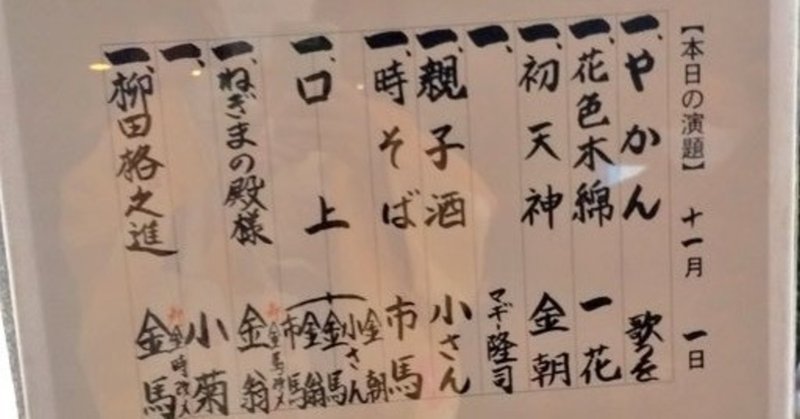 【本日の演題】 十一月 一日
一、やかん 歌つを
一、花色木綿 一花
一、初天神 金朝
一、 マギー隆司
一、親子酒 小さん
一、時そば 市馬
一、口上 金朝 小さん 金馬 金翁 市馬
一、ねぎまの殿様 金馬改メ 金翁
一、 小菊
一、柳田格之進 金時改メ 金馬